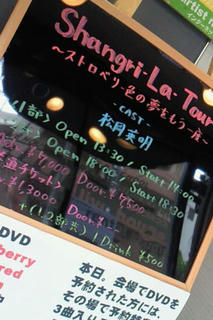 Shangri-La Tour
～ストロベリー色の夢をもう一度～
-CAST-
松岡英明
Open 13:30 / Start 14:00
Open 18:00 / Start 18:30
¥7,000 Door ¥7500
通しチケット〉
¥13,000 Door ¥--
+(1,2部共) 1Drink ¥500
DVD
berry
red
本日、会場でDVDを
予約された方には、
その場で予約特
3曲入り